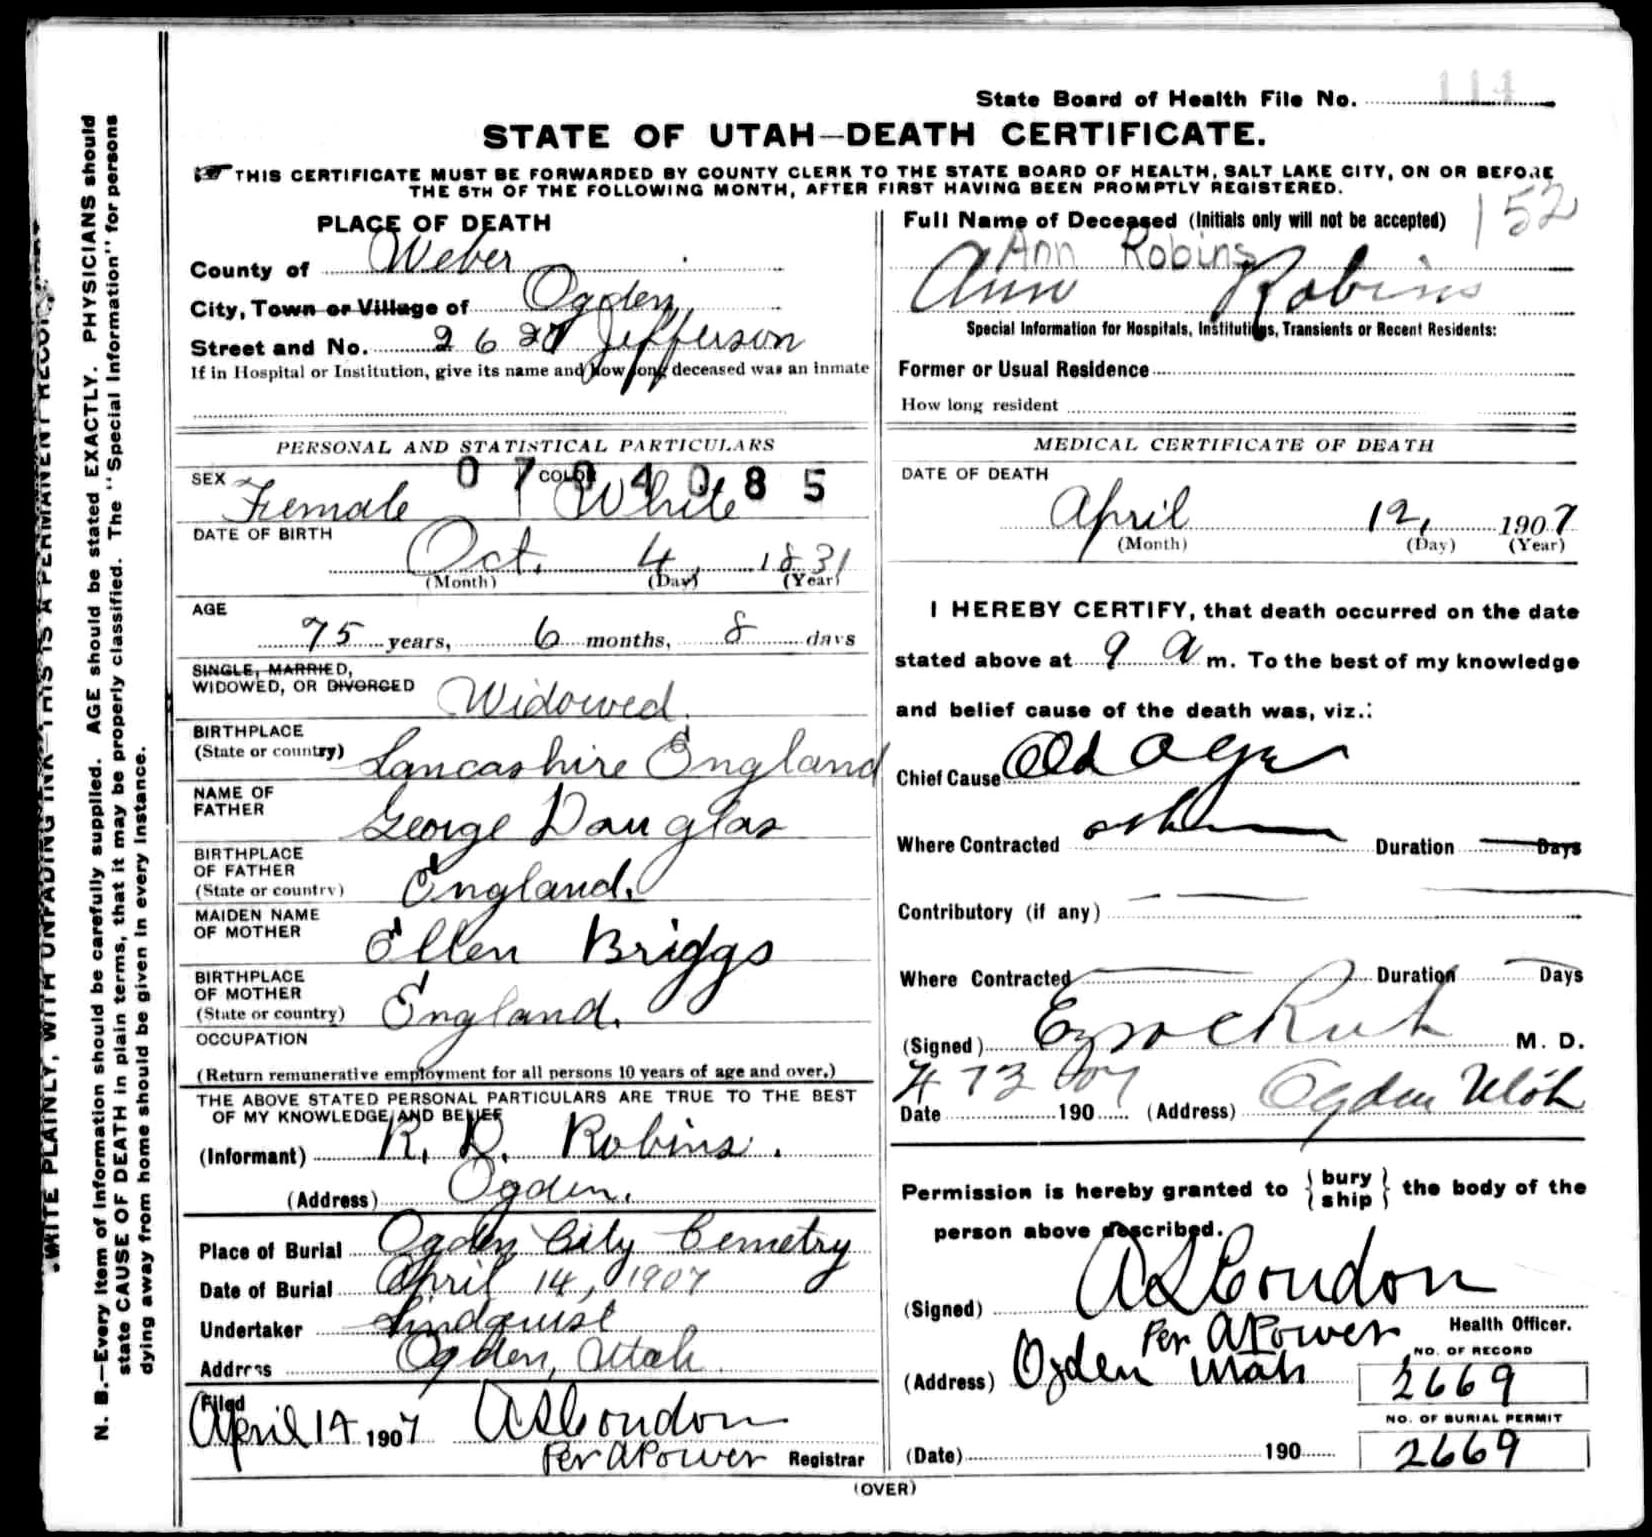 State Board of Health File No. 114
STATE OF UTAH—DEATH CERTIFICATE.
THIS CERTIFICATE MUST BE FORWARDED BY COUNTY CLERK TO THE STATE BOARD OF HEALTH, SALT LAKE CITY, ON OR BEFORE
THE 5TH OF THE FOLLOWING MONTH, AFTER FIRST HAVING BEEN PROMPTLY REGISTERED.
152
PLACE OF DEATH
County of Weber
City, Town or Village of Ogden
Street and No. 2627 Jefferson
If in Hospital or Institution, give its name and how long deceased was an inmate
Full Name of Deceased (Initials only will not be accepted)
Ann Robins
Ann Robins
Special Information for Hospitals, Institutions, Transients or Recent Residents:
Former or Usual Residence
How long resident
PERSONAL AND STATISTICAL PARTICULARS
0704085
SEX Female COLOR White
DATE OF BIRTH
Oct. 4, 1831
(Month) (Day) (Year)
AGE
75 years, 6 months, 8 days
SINGLE, MARRIED,
WIDOWED, OR DIVORCED Widowed.
BIRTHPLACE
(State or country) Lancashire England
NAME OF
FATHER George Douglas
BIRTHPLACE
OF FATHER
(State or country) England.
MAIDEN NAME
OF MOTHER Ellen Briggs
BIRTHPLACE
OF MOTHER
(State or country) England.
OCCUPATION
(Return remunerative employment for all persons 10 years of age and over.)
THE ABOVE STATED PERSONAL PARTICULARS ARE TRUE TO THE BEST
OF MY KNOWLEDGE AND BELIEF
(Informant) R. D. Robins.
(Address) Ogden.
Place of Burial Ogden City Cemetry
Date of Burial April 14, 1907
Undertaker Lindquist
Address Ogden, Utah
Filed
April 14 1907 A S Condon
Per A Power Registrar
MEDICAL CERTIFICATE OF DEATH
DATE OF DEATH
April 12, 1907
(Month) (Day) (Year)
I HEREBY CERTIFY, that death occurred on the date
stated above at 9 a m. To the best of my knowledge
and belief cause of the death was, viz.:
Chief Cause Old Age
Where Contracted Duration Days
Contributory (if any)
Where Contracted Duration Days
(Signed) M. D.
Date 190 (Address) Ogden Utah
Permission is hereby granted to { bury
ship } the body of the
person above described.
(Signed) A S Condon
Per A Power Health Officer.
(Address) Ogden Utah
NO. OF RECORD
2669
NO. OF BURIAL PERMIT
2669
(Date) 190
(OVER)
N. B.—Every item of information should be carefully supplied. AGE should be stated EXACTLY. PHYSICIANS should
state CAUSE OF DEATH in plain terms, that it may be properly classified. The "Special Information" for persons
dying away from home should be given in every instance.
WRITE PLAINLY, WITH UNFADING INK—THIS IS A PERMANENT RECORD